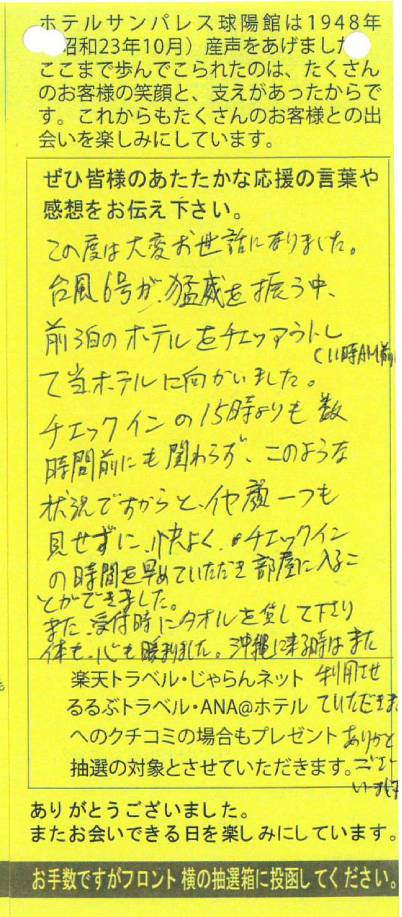 ホテルサンパレス球陽館は1948年
昭和23年10月）産声をあげまし
ここまで歩んでこられたのは、たくさん
のお客様の笑顔と、支えがあったからで
す。これからもたくさんのお客様との出
会いを楽しみにしています。
ぜひ皆様のあたたかな応援の言葉や
感想をお伝え下さい。
この度は大変お世話になりました。
台風6号が、猛威を振う中、
前3泊のホテルをチェックアウトし
(11時AM前
て当ホテルに向かいました。
チェックインの15時よりも数
時間前にも関わらず、このような
状況ですからと、イヤ顔一つも
見せずに、快よく、チェックイン
の時間を早めていただき部屋に入るこ
とができました。
また、受付時にタオルを貸して下さり
体も、心も暖まりました。沖縄に来る時はまた
利用させ
ていただきま
ありがと
ござー
い
楽天トラベル・じゃらんネット
るるぶトラベル・ANA@ホテル
へのクチコミの場合もプレゼント
抽選の対象とさせていただきます。
ありがとうございました。
またお会いできる日を楽しみにしています。
お手数ですがフロント横の抽選箱に投函してください。